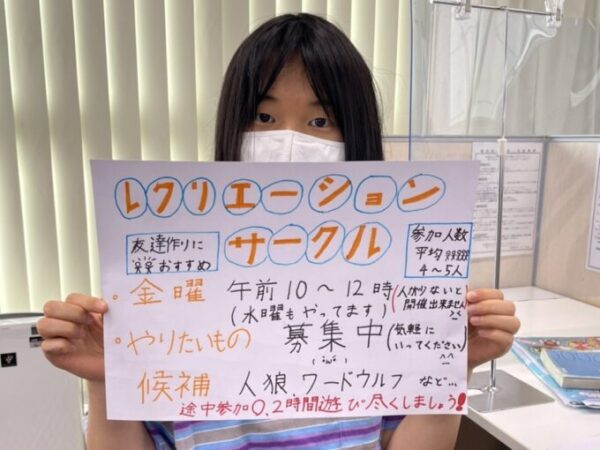 レクリエーション
サークル
友達作りに
おすすめ
参加人数
平均
4〜5人
・金曜 午前10〜12時(人が少ないと開催出来ません><)
(水曜もやってます)
・やりたいもの 募集中(気軽にいってください^^)
候補 人狼、ワードウルフ など…
途中参加○、2時間遊び尽くしましょう!